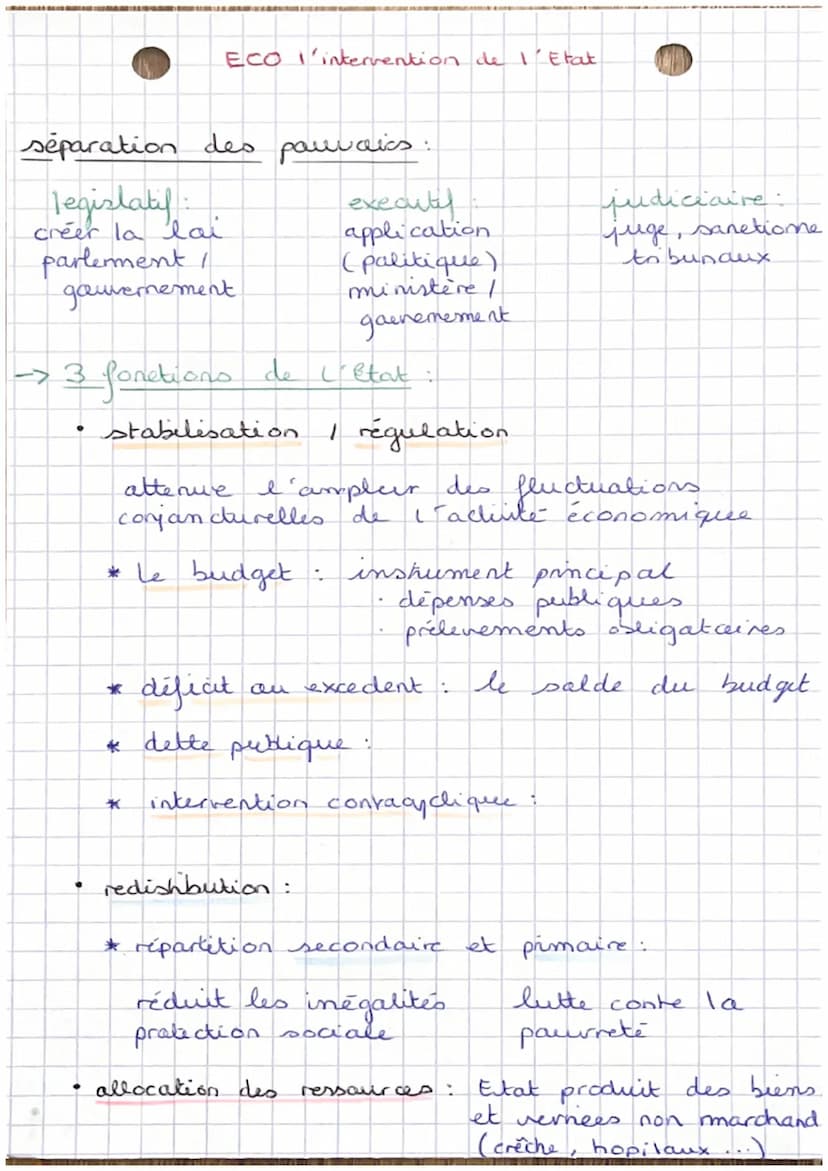 ECO l'intervention de l'Etat
séparation des pouvoirs :
legislatif : executif : judiciaire :
créer la loi application juge, sanctionne
parlemment / (politique) tribunaux
gouvernement ministère /
gouvernement
-> 3 fonctions de l'Etat :
• stabilisation / régulation
attenue l'ampleur des fluctuations
conjoncturelles de l'activité économique
* Le budget : instrument principal
· dépenses publiques
· prélevements obligatoires
* déficit ou excedent : le solde du budget
* dette publique :
* intervention contracyclique :
• redistribution :
* répartition secondaire et primaire :
réduit les inégalités lutte contre la
protection sociale pauvreté
• allocation des ressources : Etat produit des biens
et services non marchand
(crêche, hopitaux ...)